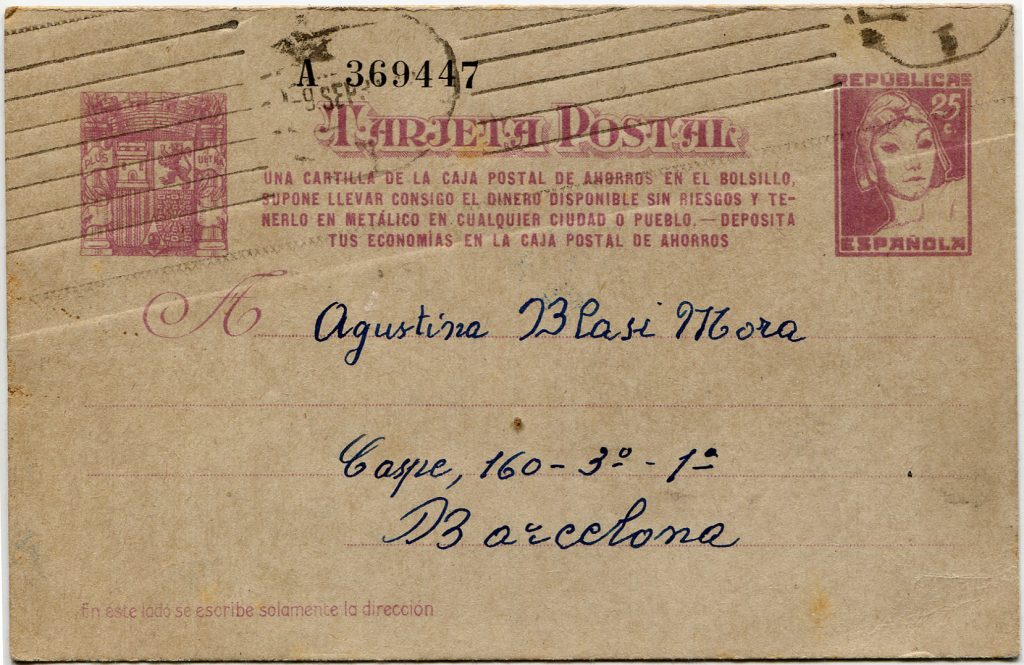 A 369447
TARJETA POSTAL
REPÚBLICA
25 c.
PLUS ULTRA
UNA CARTILLA DE LA CAJA POSTAL DE AHORROS EN EL BOLSILLO,
SUPONE LLEVAR CONSIGO EL DINERO DISPONIBLE SIN RIESGOS Y TE-
NERLO EN METÁLICO EN CUALQUIER CIUDAD O PUEBLO.—DEPOSITA
TUS ECONOMÍAS EN LA CAJA POSTAL DE AHORROS
ESPAÑOLA
A Agustina Blasi Mora
Caspe, 160-3º-1ª
Barcelona
En este lado se escribe solamente la dirección